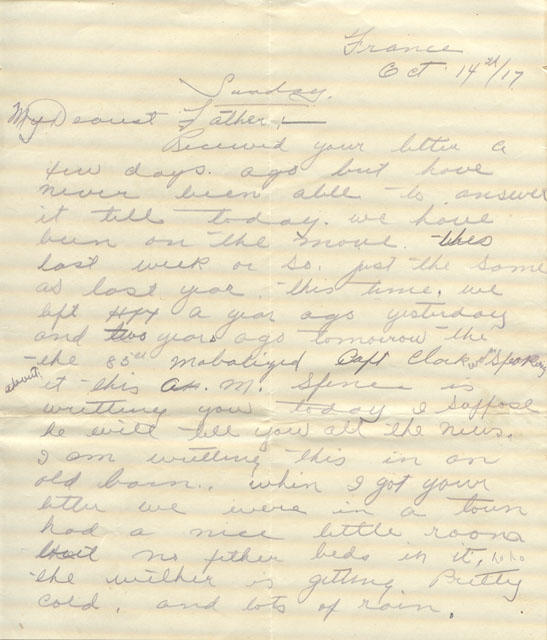 France
Oct 14th/17
Sunday.
My Dearest Father:—
Received your letter a
few days. ago but have
never been able to answer
it till today. we have
been on the move. this
last week or so. just the same
as last year. this time, we
left Hfx a year ago yesterday
and two years ago tomorrow the
the 85th mobalized Capt Clark was Spoking
about
it this A. M. Spence is
writting you today I suppose
he will tell you all the news.
I am writting this in an
old barn. when I got your
letter we were in a town
had a nice little room
but no fether beds in it, ho ho
the wether is getting Pretty
cold, and lots of rain.